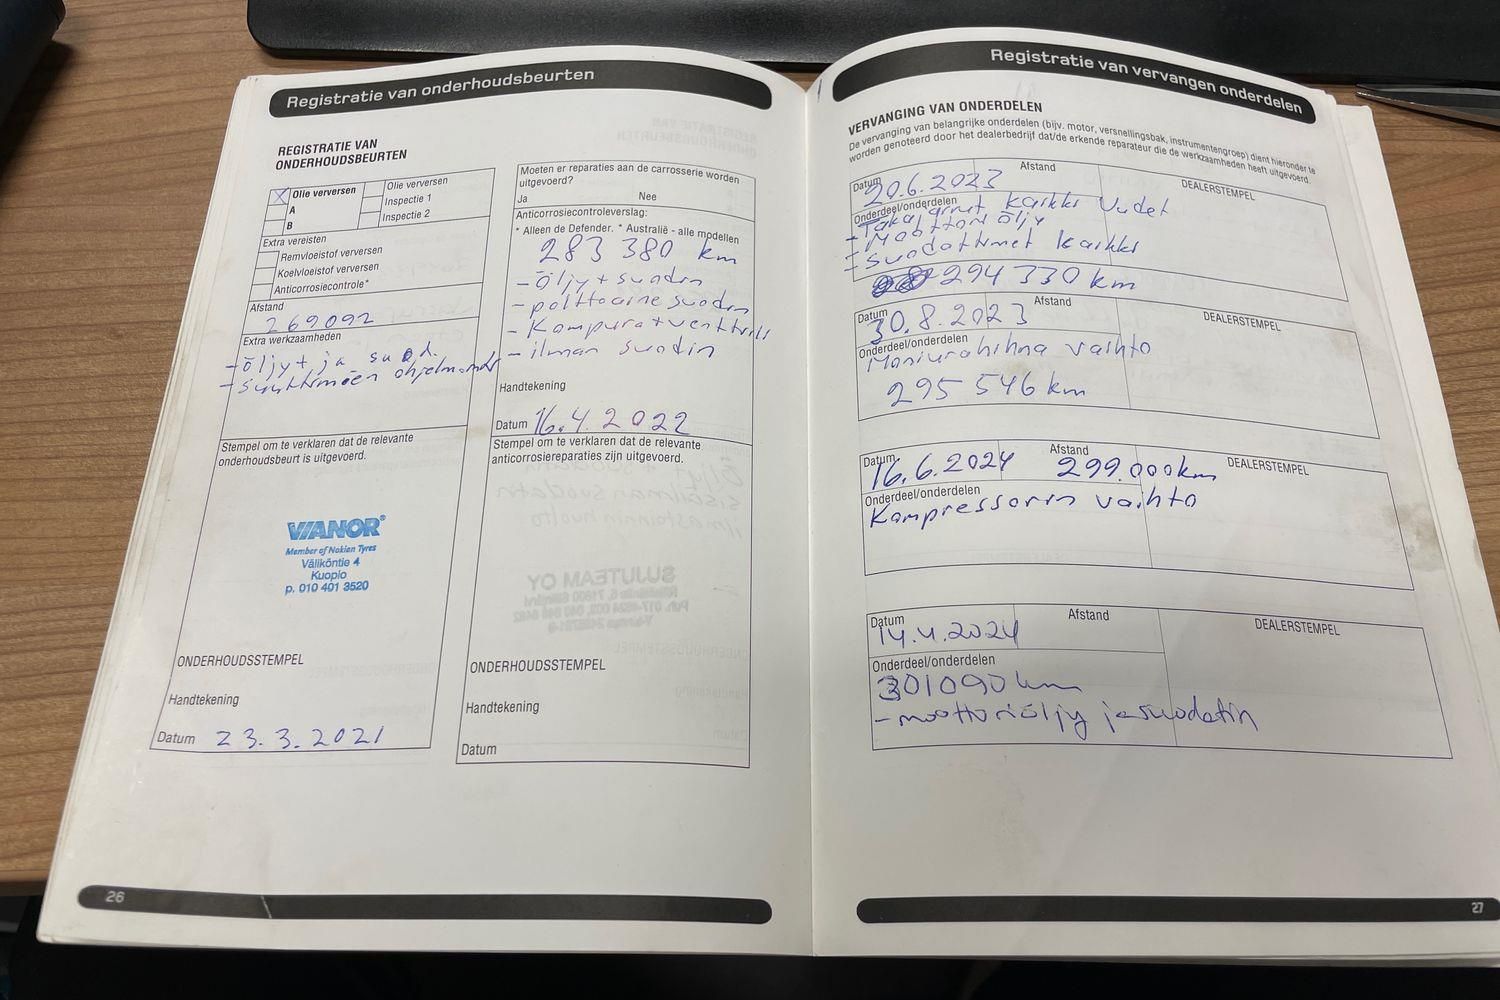 Registratie van onderhoudsbeurten
REGISTRATIE VAN
ONDERHOUDSBEURTEN
Olie verversen
A
B
Olie verversen
Inspectie 1
Inspectie 2
Extra vereisten
Remvloeistof verversen
Koelvloeistof verversen
Anticorrosiecontrole*
Afstand
269092
Extra werkzaamheden
- öljyt ja suod.
- suuttimien ohjelmointi
Stempel om te verklaren dat de relevante
onderhoudsbeurt is uitgevoerd.
VIANOR®
Member of Nokian Tyres
Väliköntie 4
Kuopio
p. 010 401 3520
ONDERHOUDSSTEMPEL
Handtekening
Datum 23.3.2021
Moeten er reparaties aan de carrosserie worden
uitgevoerd?
Ja Nee
Anticorrosiecontroleverslag:
* Alleen de Defender. * Australië - alle modellen
283 380 km
- öljy + suodin
- polttoaine suodin
- Kampura + venttiili
- ilman suodin
Handtekening
Datum 16.4.2022
Stempel om te verklaren dat de relevante
anticorrosiereparaties zijn uitgevoerd.
SUJUTEAM OY
ONDERHOUDSSTEMPEL
Handtekening
Datum
26
Registratie van vervangen onderdelen
VERVANGING VAN ONDERDELEN
De vervanging van belangrijke onderdelen (bijv. motor, versnellingsbak, instrumentengroep) dient hieronder te
worden genoteerd door het dealerbedrijf dat/de erkende reparateur die de werkzaamheden heeft uitgevoerd.
Datum 20.6.2023 Afstand DEALERSTEMPEL
Onderdeel/onderdelen
- Taka jarrut kaikki uudet
- Moottori öljy
- Suodattimet kaikki
294 330 km
Datum 30.8.2023 Afstand DEALERSTEMPEL
Onderdeel/onderdelen
Moniurahihna vaihto
295 546 km
Datum 16.6.2024 Afstand 299.000km DEALERSTEMPEL
Onderdeel/onderdelen
Kompressorin vaihto
Datum 14.4.2024 Afstand DEALERSTEMPEL
Onderdeel/onderdelen
301090 km
- moottoriöljy ja suodatin
27